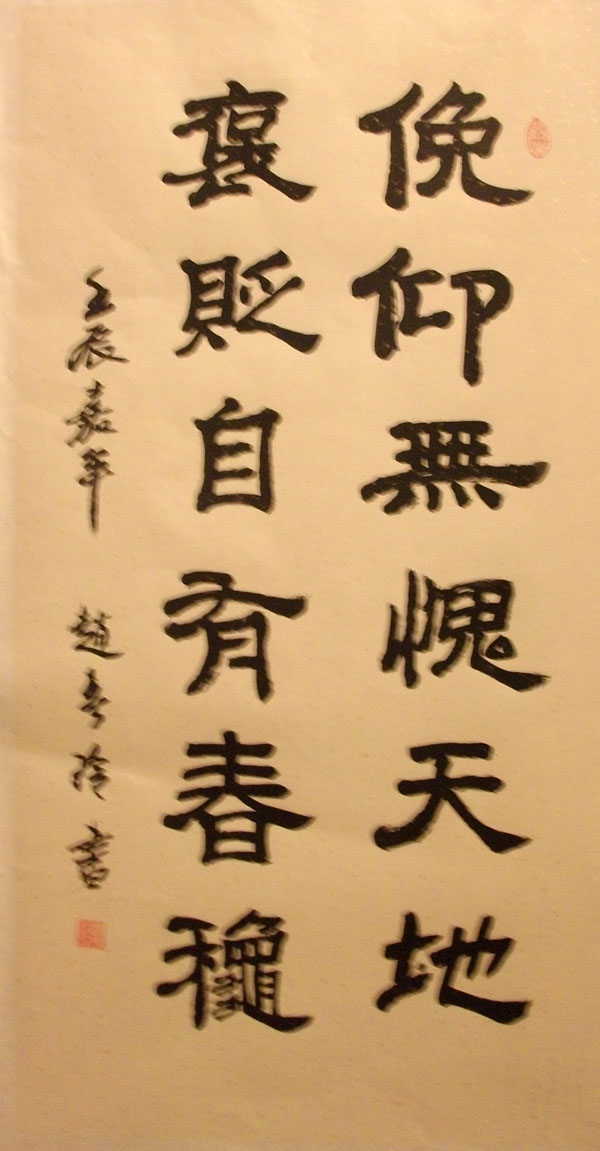 俛仰無愧天地
褒貶自有春龝
壬辰嘉平 趙 玲書